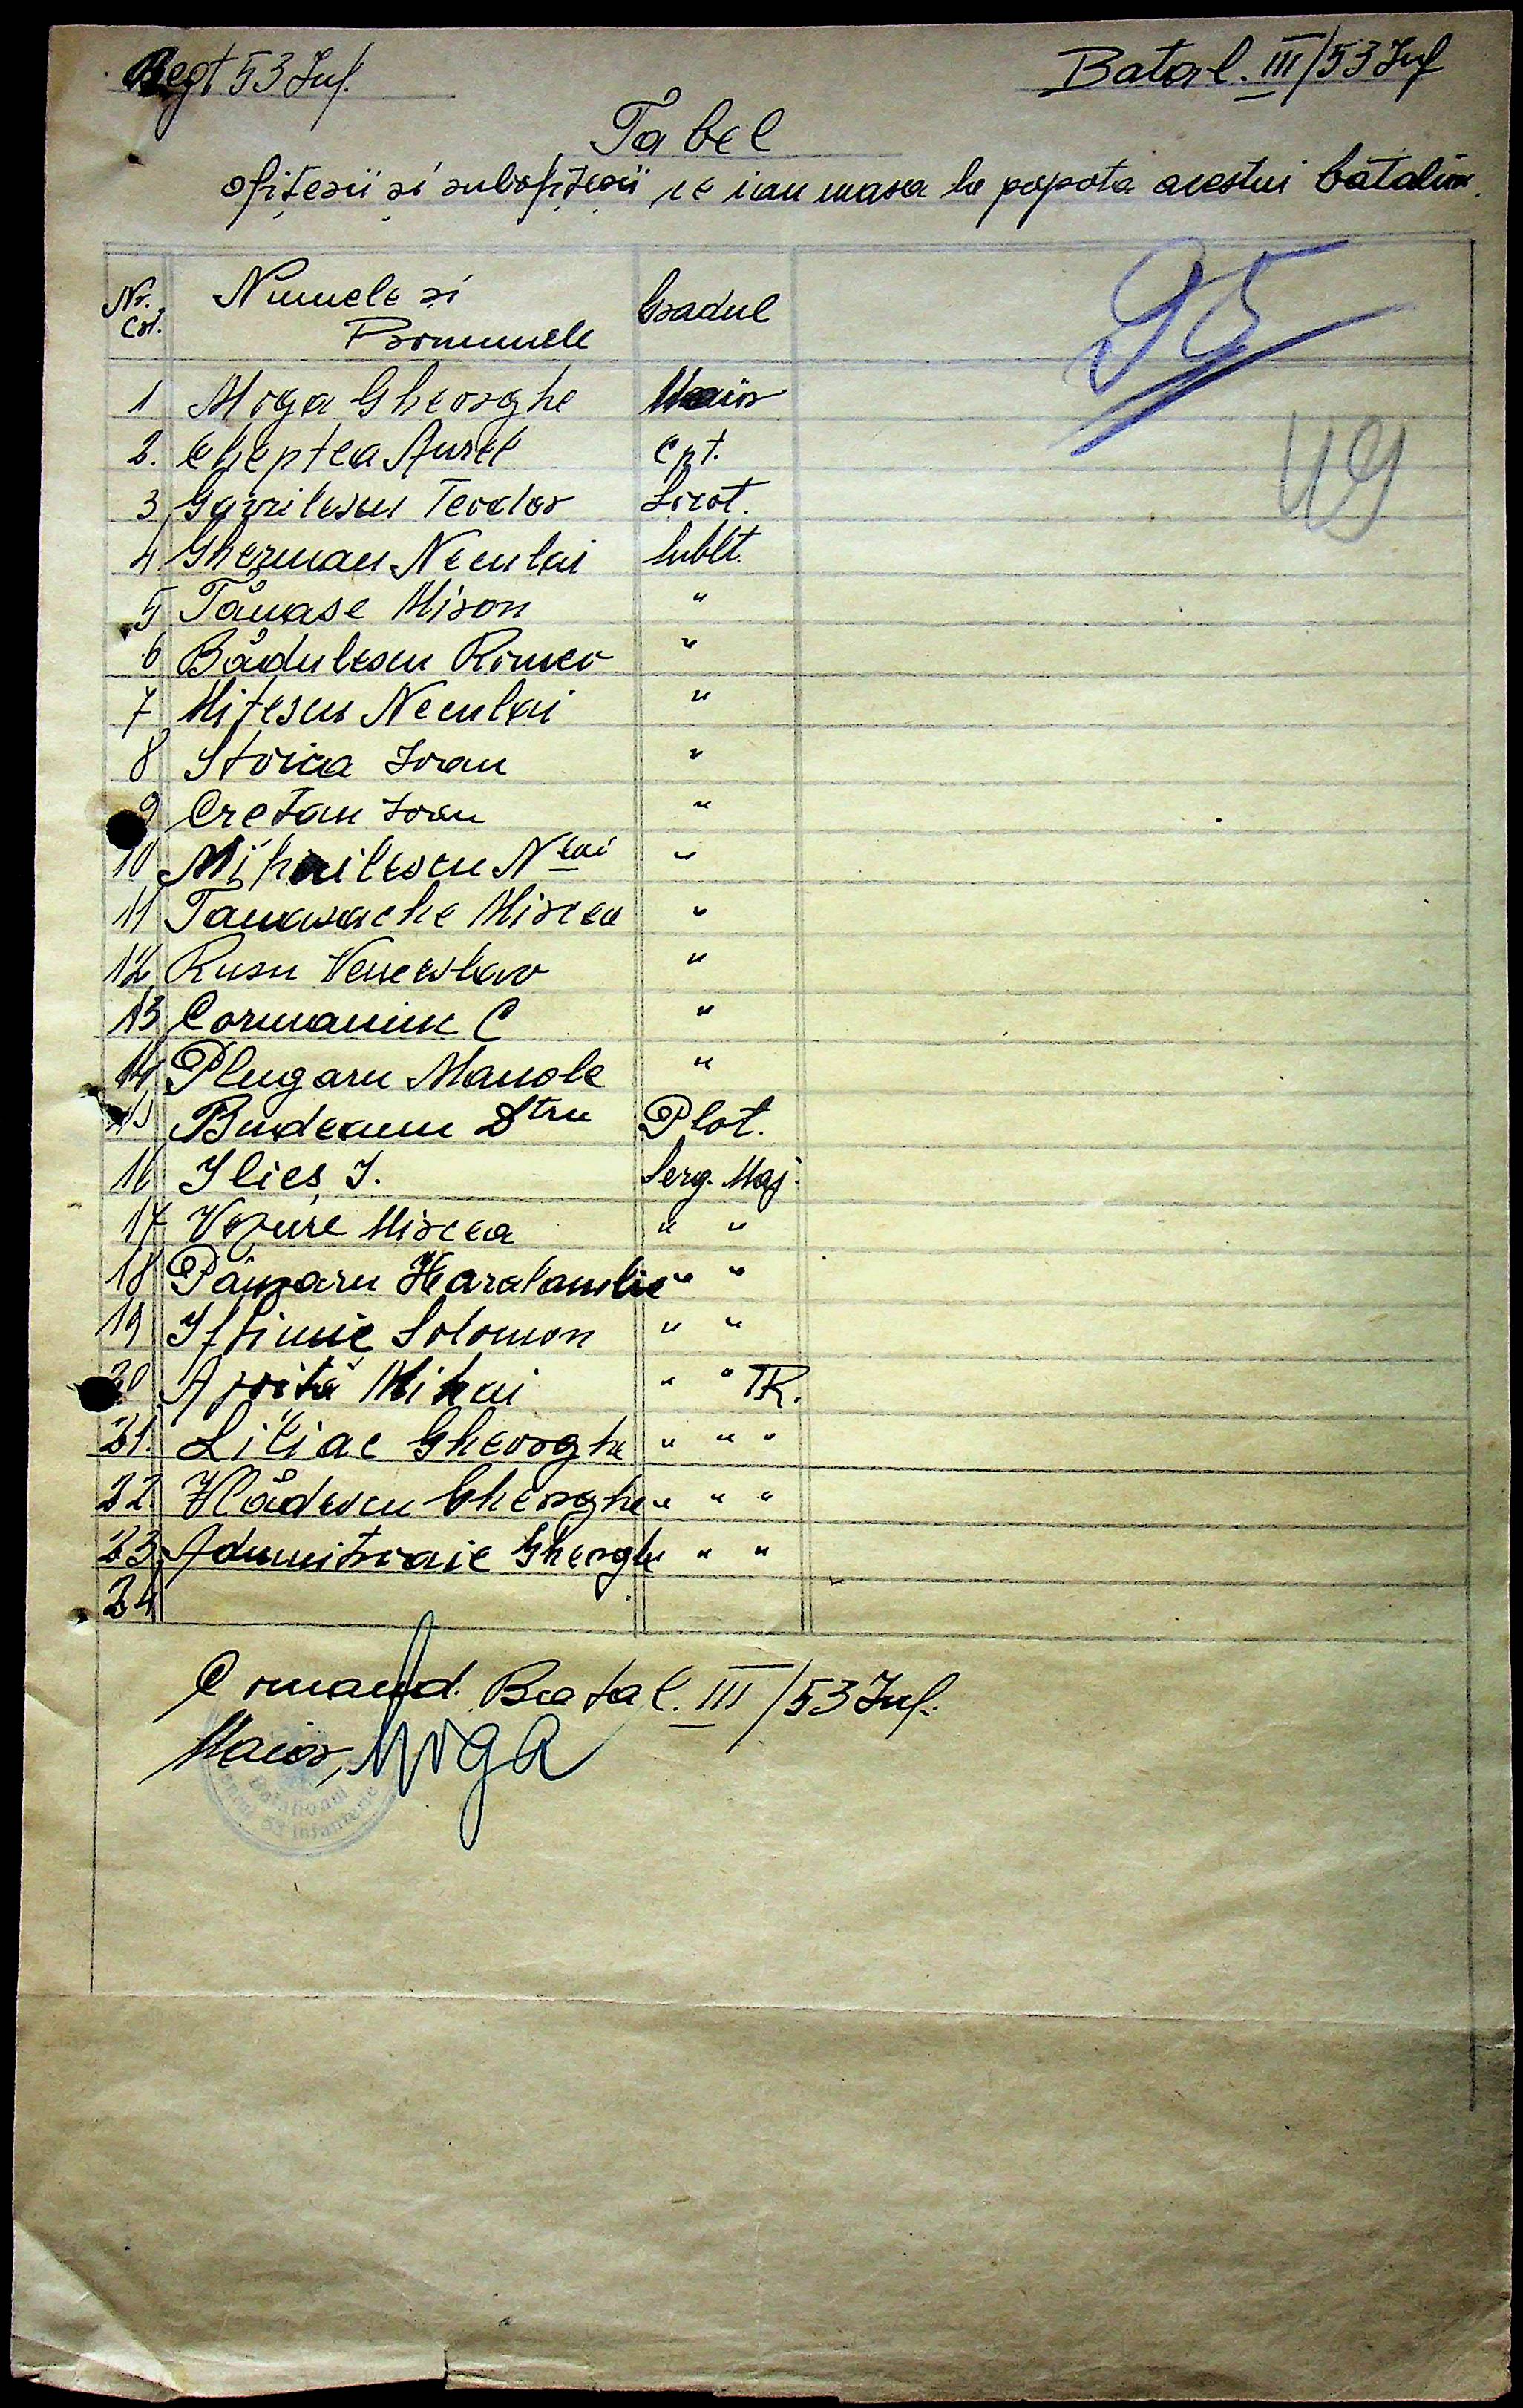 Regt 53 Inf. Batal. III/53 Inf
Tabel
ofițerii și subofițerii ce iau masa la popota acestui batalion.
Nr. Crt. Numele și Pronumele Gradul
95
49
1 Moga Gheorghe Maior
2. Cheptea Aurel Cpt.
3 Gavrilescu Teodor Locot.
4 Gherman Neculai Sublt.
5 Tănase Miron "
6 Bădulescu Romeo "
7 Mițescu Neculai "
8 Stoica Ioan "
9 Cretan Ioan "
10 Mihailescu Nlai "
11 Tanasache Mircea "
12 Rusu Venceslav "
13 Cormaniuc C "
14 Plugaru Manole "
15 Budeanu Dtru Plot.
16 Ilieș I. Serg. Maj.
17 Vezure Mircea " "
18 Pânzaru Haralambie " "
19 Iftimie Solomon " "
20 Apostă Mihai " " TR.
21. Liliac Gheorghe " " "
22. Vlădescu Gheorghe " " "
23. Adumitroaie Gheorghe " " "
24
Comand. Batal. III/53 Inf.
Maior, Moga
Batalionul
53 Infanterie